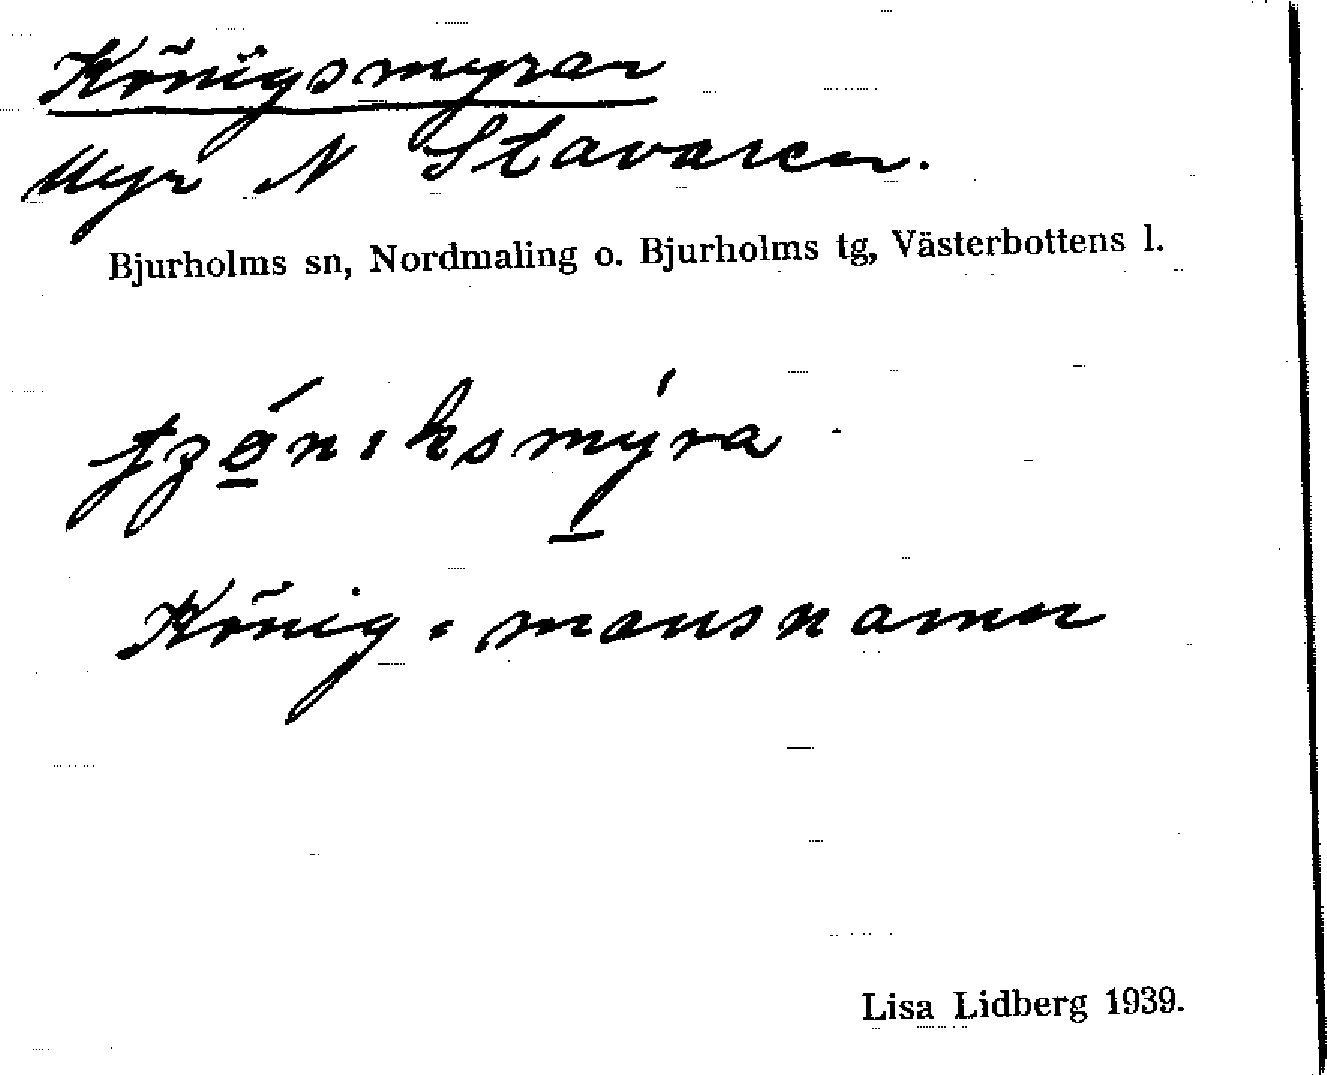 Königsmyran
Myr N Stavaren.
Bjurholms sn, Nordmaling o. Bjurholms tg, Västerbottens l.
König = mansnamn
Lisa Lidberg 1939.